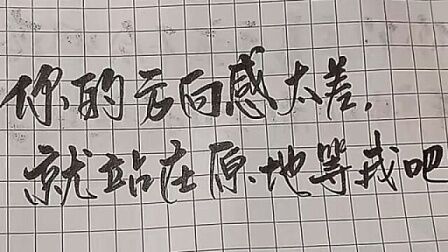 你的方向感太差,
就站在原地等我吧